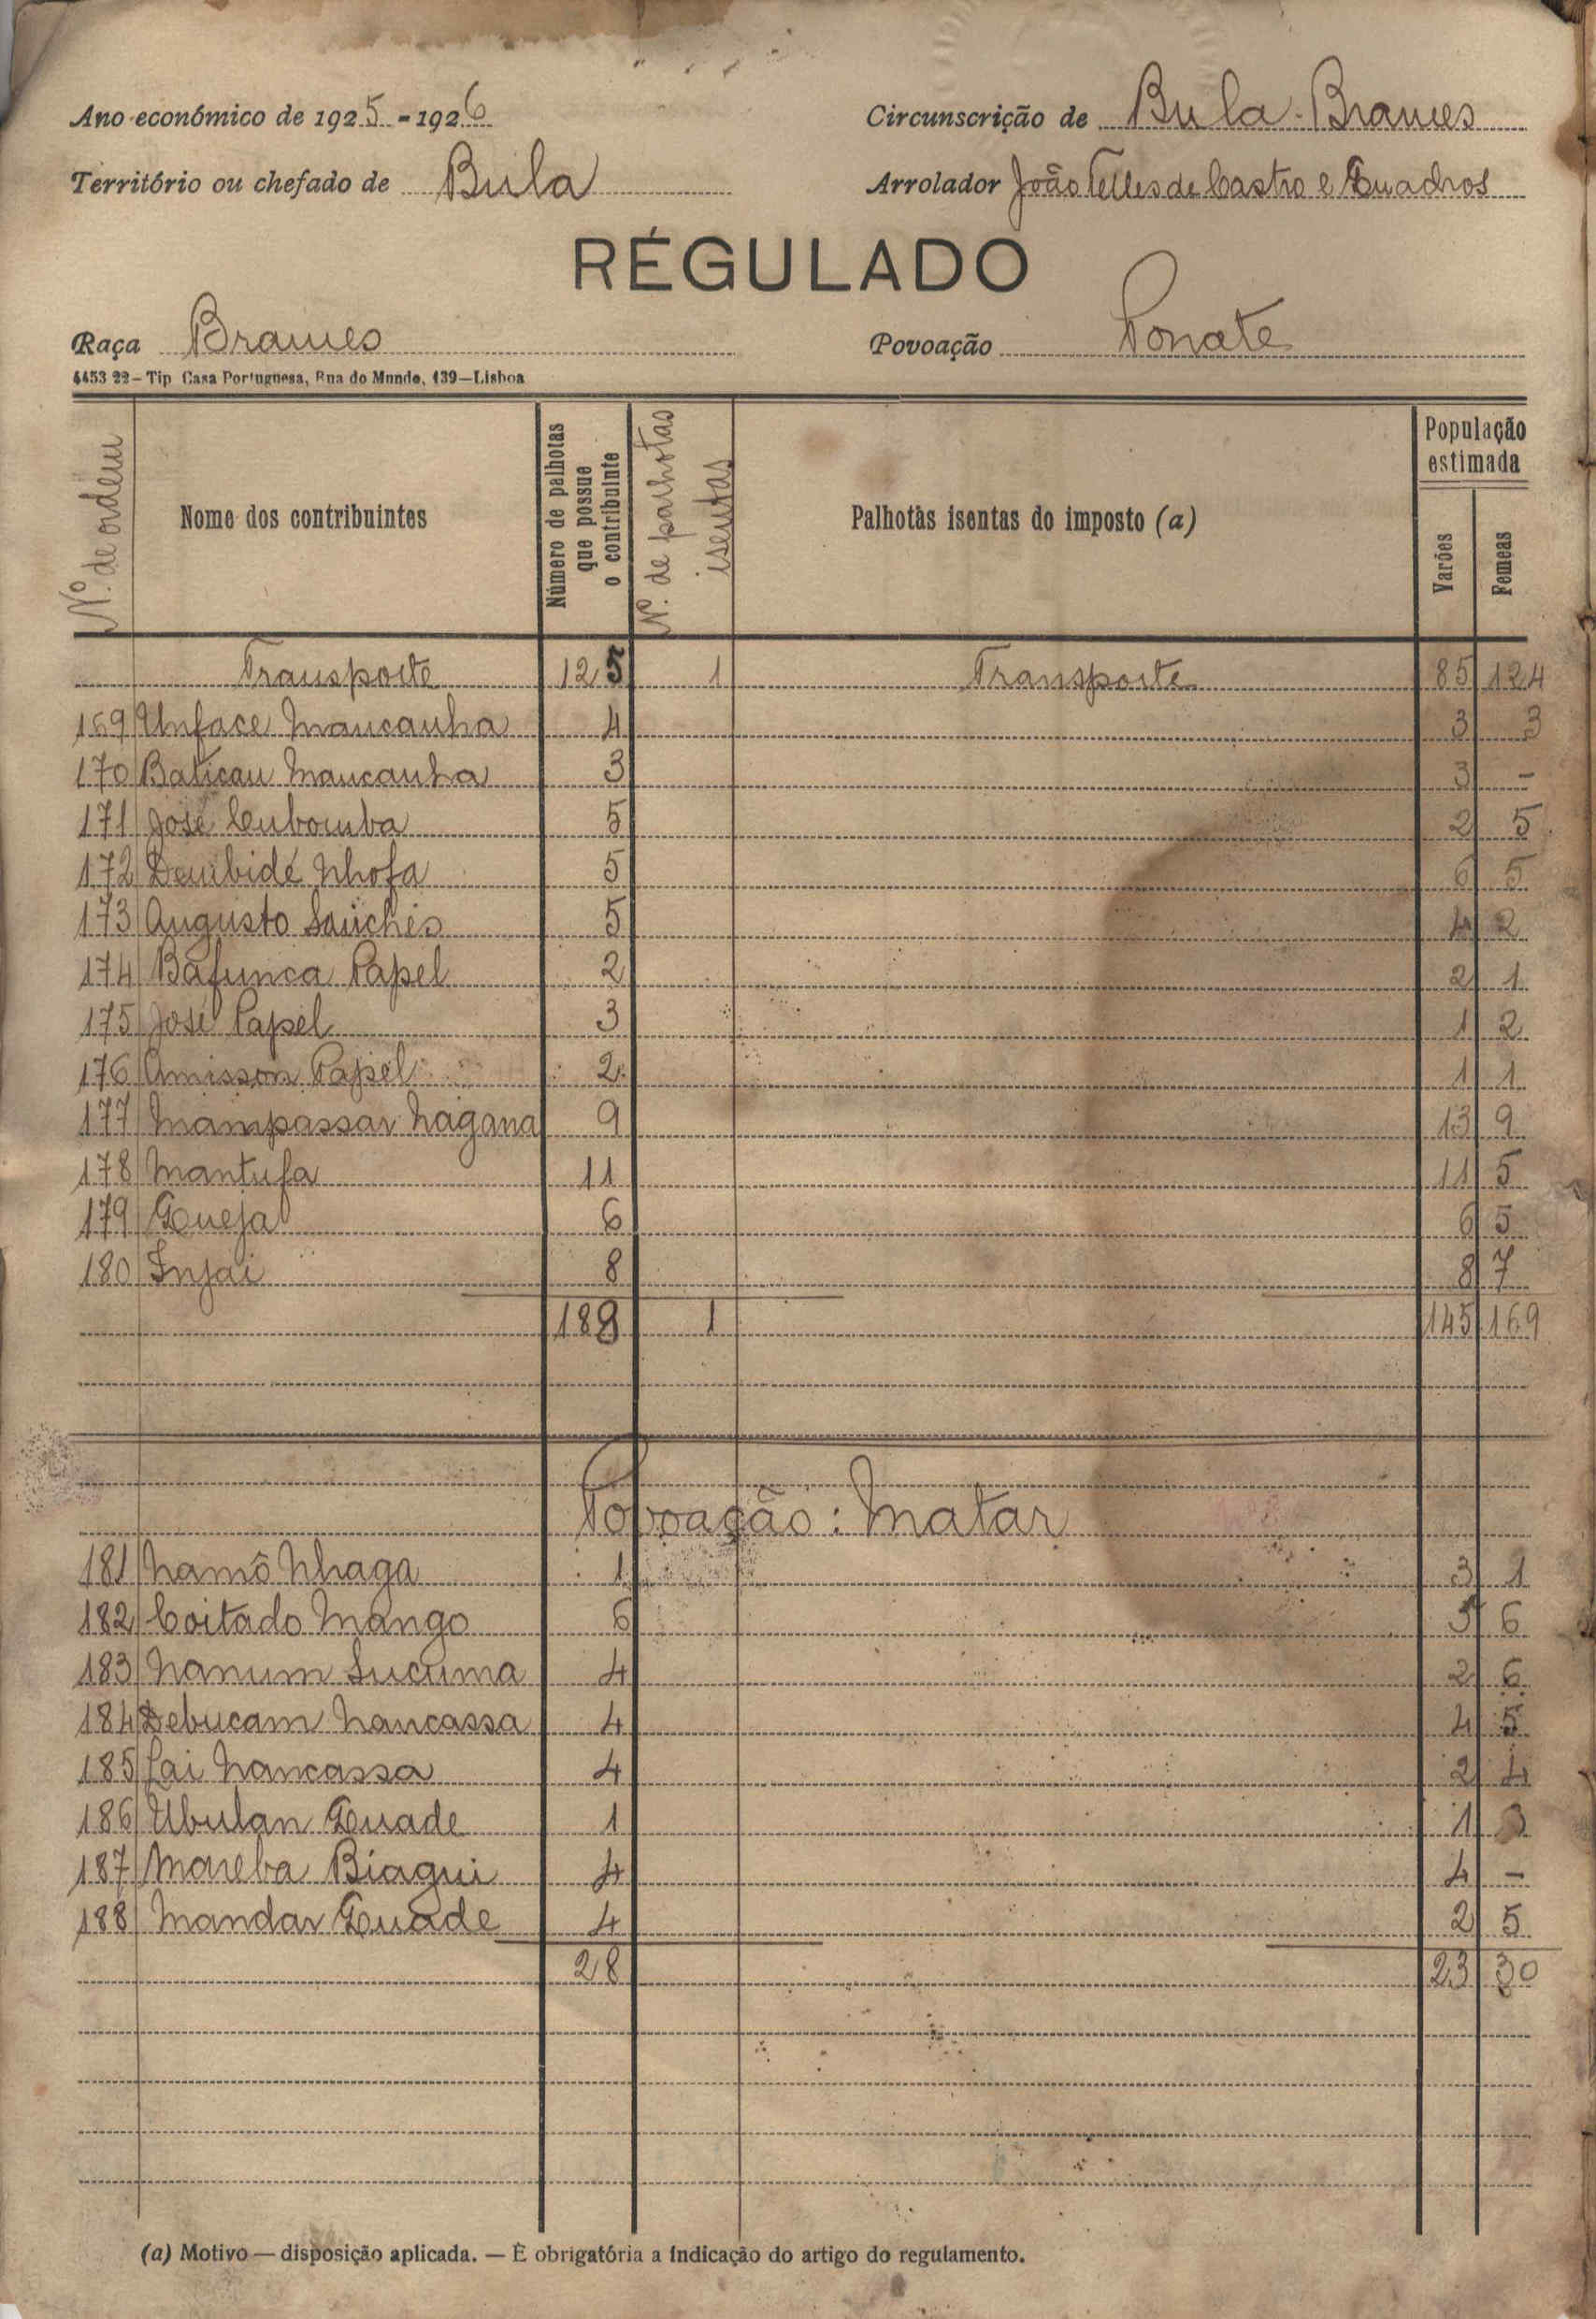 Ano económico de 1925-1926
Circunscrição de Bula-Brames
Território ou chefado de Bula
Arrolador João Telles de Castro e Quadros
RÉGULADO
Raça Brames
Povoação Ponate
4453 22 - Tip Casa Portuguesa, Rua do Mundo, 139-Lisboa
Nº. de ordem
Nome dos contribuintes
Número de palhotas que possue o contribuinte
Nº. de palhotas isentas
Palhotas isentas do imposto (a)
População estimada
Varões
Femeas
Transporte 125 1 Transporte 85 124
169 Unface Mancanha 4 3 3
170 Baticau Mancanha 3 3 -
171 José Cubomba 5 2 5
172 Dembidé Nhofa 5 6 5
173 Augusto Sanches 5 4 2
174 Bafunca Papel 2 2 1
175 José Papel 3 1 2
176 Amisson Papel 2 1 1
177 Mampassar Nagana 9 13 9
178 Mantufa 11 11 5
179 Queja 6 6 5
180 Injai 8 8 7
188 1 145 169
Povoação: Matar
181 Namô Nhaga 1 3 1
182 Coitado Mango 6 5 6
183 Nanum Sucuma 4 2 6
184 Debucam Nancassa 4 4 5
185 Lai Nancassa 4 2 4
186 Ubulan Quade 1 1 3
187 Mareba Biagui 4 4 -
188 Mandar Quade 4 2 5
28 23 30
(a) Motivo — disposição aplicada. — É obrigatória a indicação do artigo do regulamento.